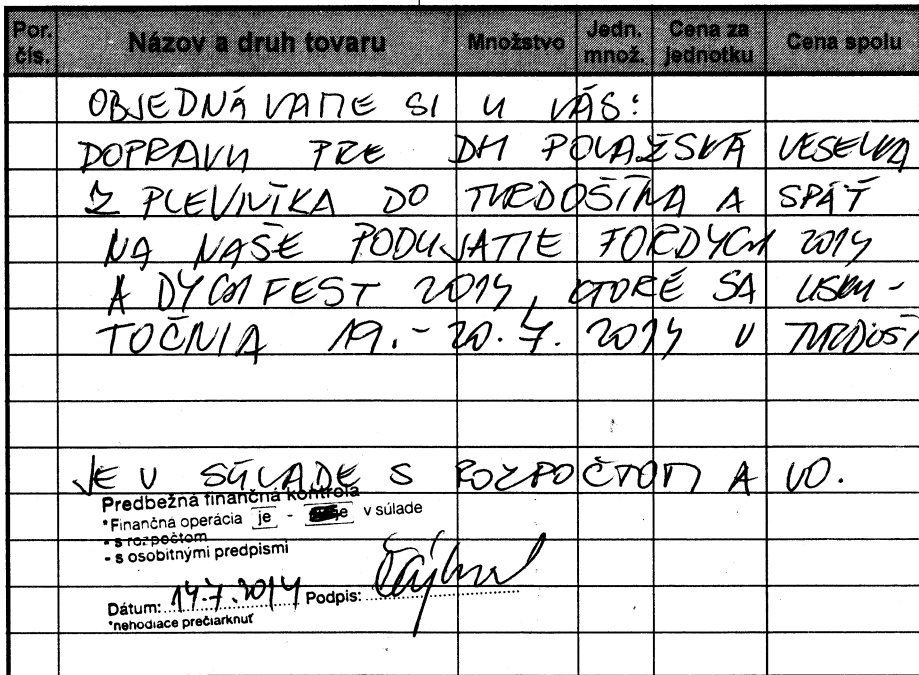 Por. čís. Názov a druh tovaru Množstvo Jedn. množ. Cena za jednotku Cena spolu
OBJEDNÁVAME SI U VÁS:
DOPRAVU PRE DH POVAŽSKÁ VESELKA
Z PLEVNÍKA DO TVRDOŠÍNA A SPÄŤ
NA NAŠE PODUJATIE FORDYCH 2014
A DYCHFEST 2014, KTORÉ SA USKU-
TOČNIA 19.-20.7. 2014 V TVRDOŠ
JE V SÚLADE S ROZPOČTOM A VO.
Predbežná finančná kontrola
*Finančná operácia je - v súlade
- s rozpočtom
- s osobitnými predpismi
Dátum: 14.7.2014 Podpis:
*nehodiace prečiarknuť